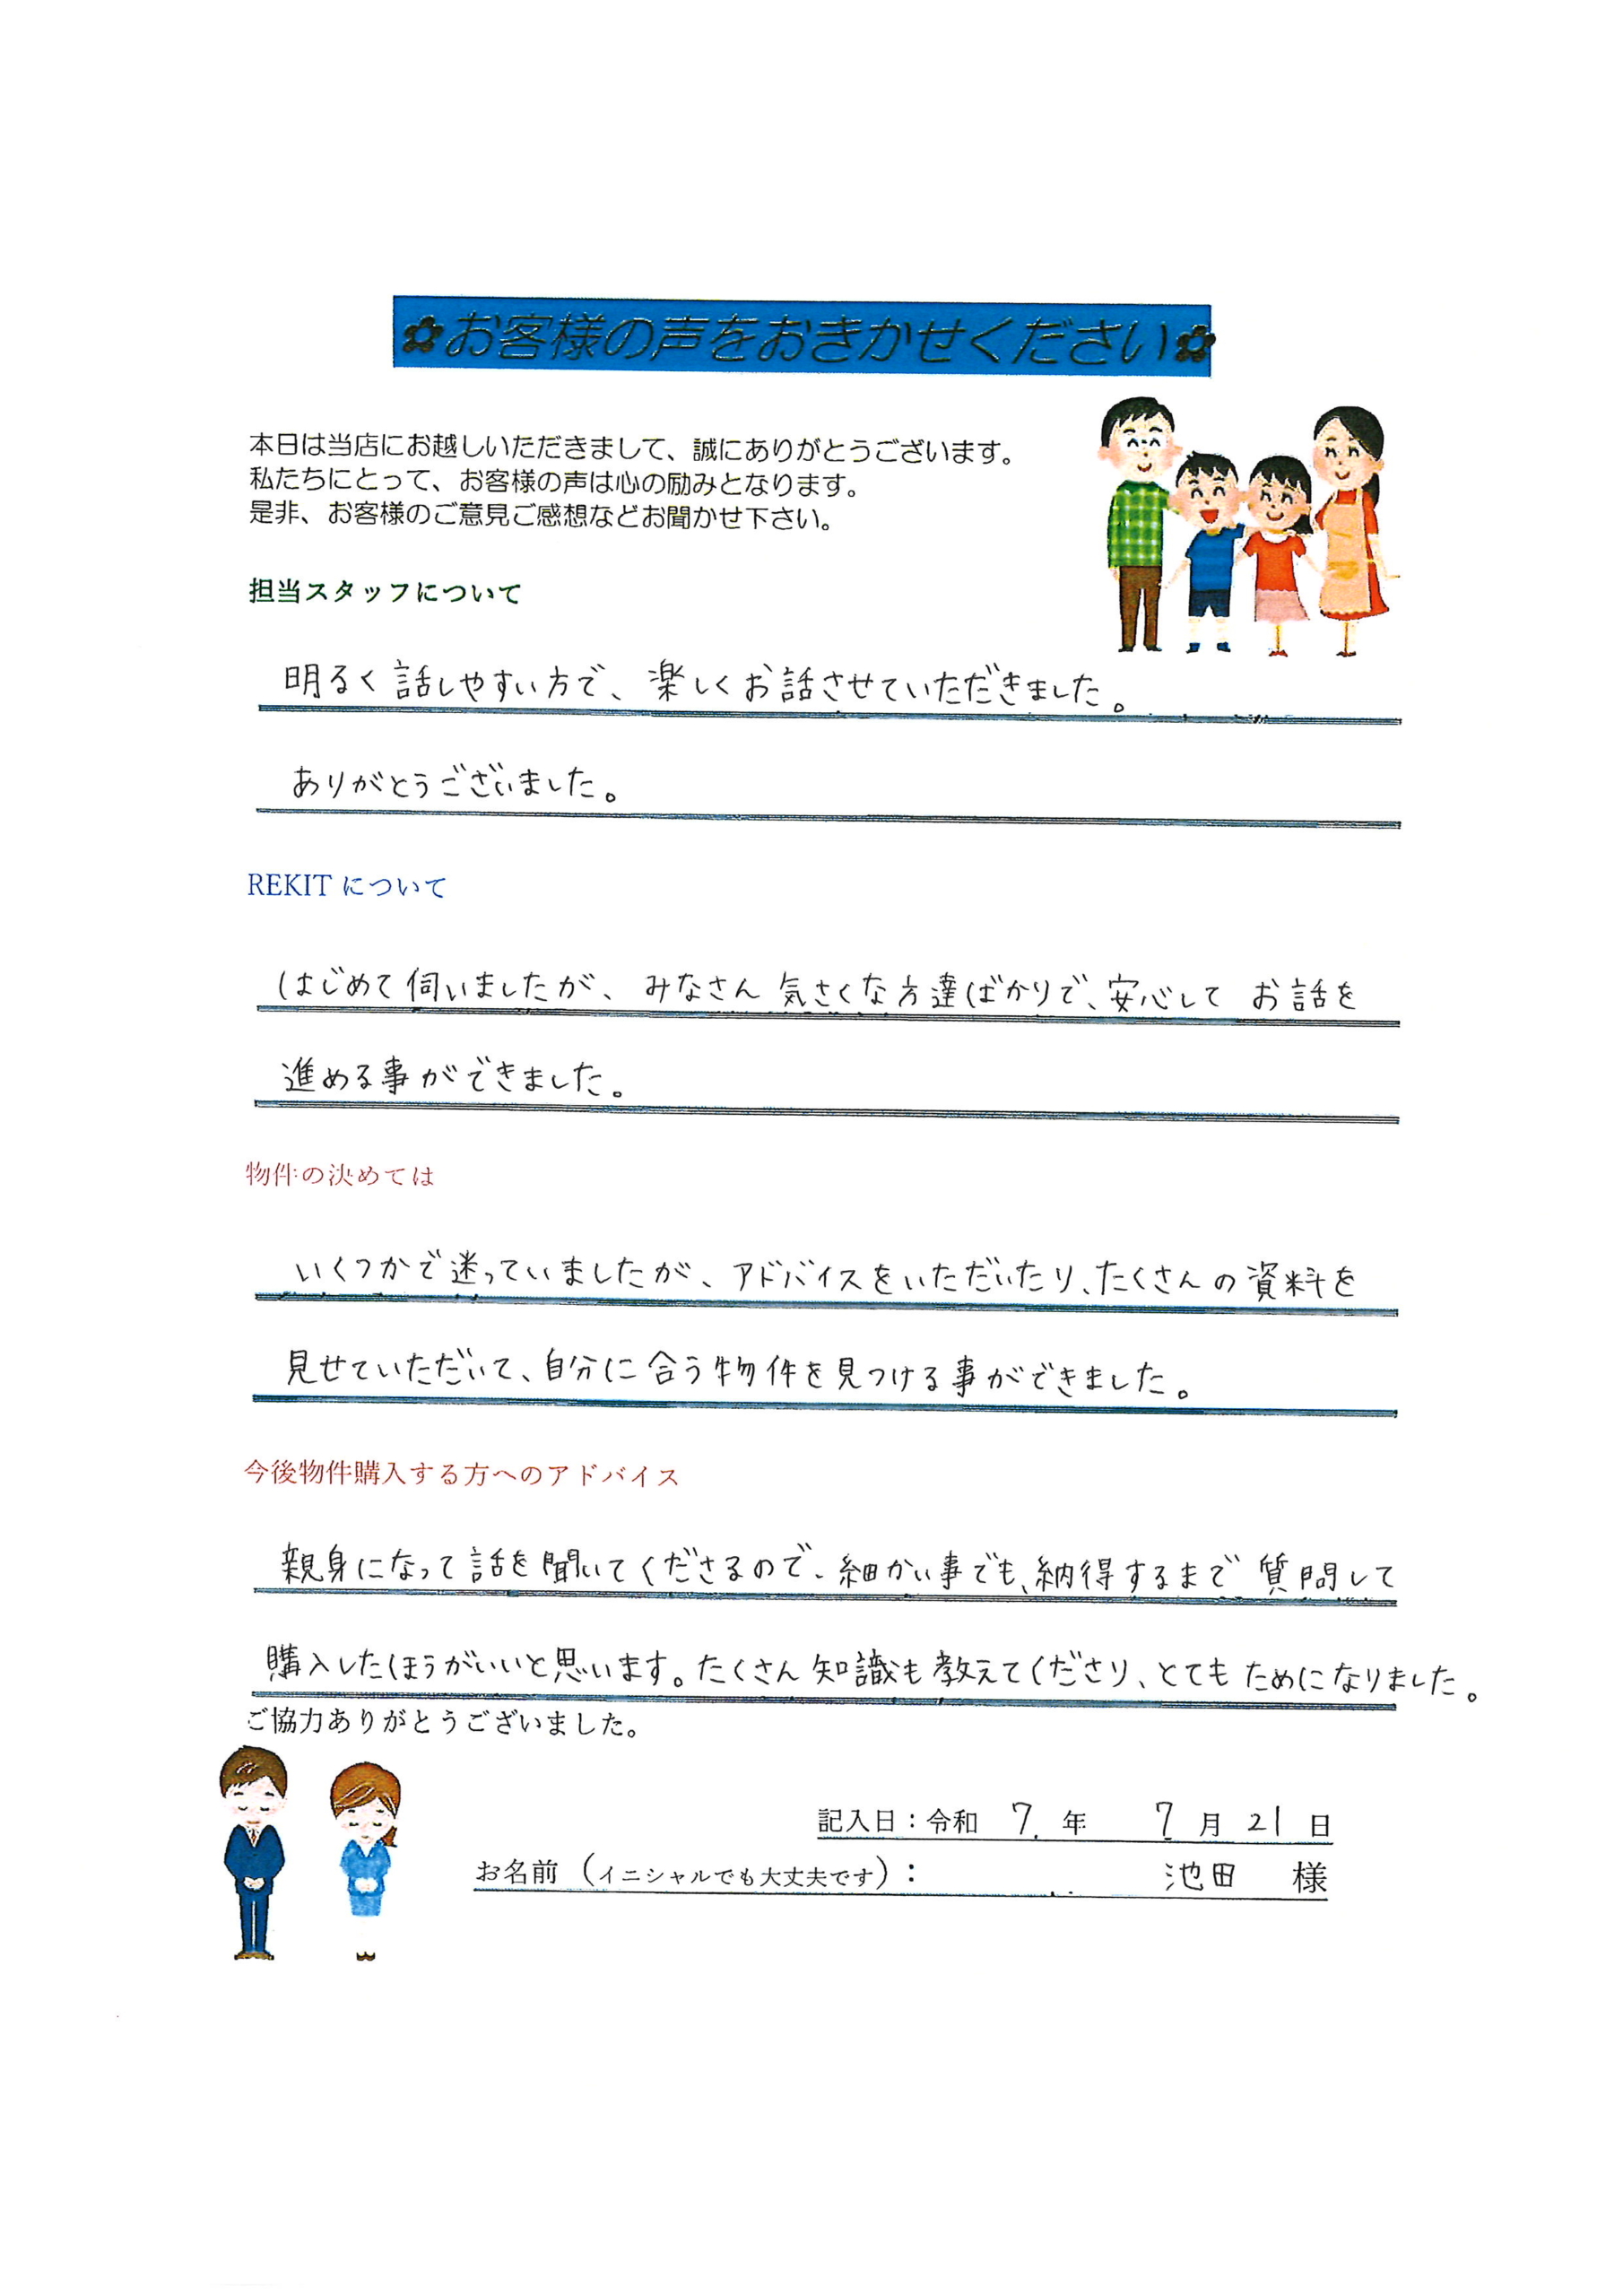 ✿お客様の声をおきかせください✿
本日は当店にお越しいただきまして、誠にありがとうございます。
私たちにとって、お客様の声は心の励みとなります。
是非、お客様のご意見ご感想などお聞かせ下さい。
担当スタッフについて
明るく話しやすい方で、楽しくお話させていただきました。
ありがとうございました。
REKITについて
はじめて伺いましたが、みなさん気さくな方達ばかりで、安心してお話を
進める事ができました。
物件の決めては
いくつかで迷っていましたが、アドバイスをいただいたり、たくさんの資料を
見せていただいて、自分に合う物件を見つける事ができました。
今後物件購入する方へのアドバイス
親身になって話を聞いてくださるので、細かい事でも、納得するまで質問して
購入したほうがいいと思います。たくさん知識も教えてくださり、とてもためになりました。
ご協力ありがとうございました。
記入日：令和 7 年 7 月 21 日
お名前（イニシャルでも大丈夫です）： 池田 様